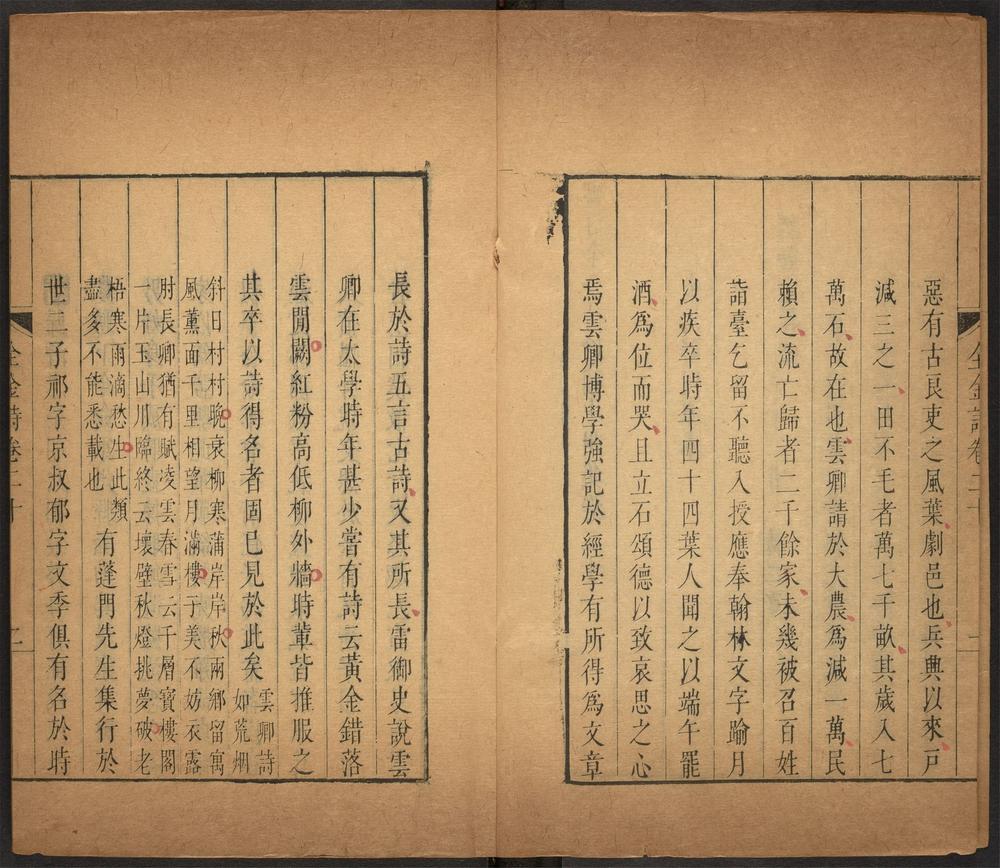 惡有古良吏之風葉劇邑也兵興以來戸
減三之一田不毛者萬七千畝其歲入七
萬石故在也雲卿請於大農為減一萬民
賴之流亡歸者二千餘家未幾被召百姓
詣臺乞留不聽入授應奉翰林文字踰月
以疾卒時年四十四葉人聞之以端午罷
酒為位而哭且立石頌德以致哀思之心
焉雲卿博學強記於經學有所得為文章
長於詩五言古詩又其所長雷御史說雲
卿在太學時年甚少嘗有詩云黃金錯落
雲閒闕紅粉高低柳外牆時輩皆推服之
其卒以詩得名者固已見於此矣
雲卿詩
如荒烟
斜日村村晚衰柳寒蒲岸岸秋兩鄉留寓
風薰面千里相望月滿樓子美不妨衣露
肘長卿猶有賦凌雲春雪云千層寶樓閣
一片玉山川臨終云壞壁秋燈挑夢破老
梧寒雨滴愁生此類
盡多不能悉載也
有蓬門先生集行於
世二子祁字京叔郁字文季俱有名於時
全金詩卷二十